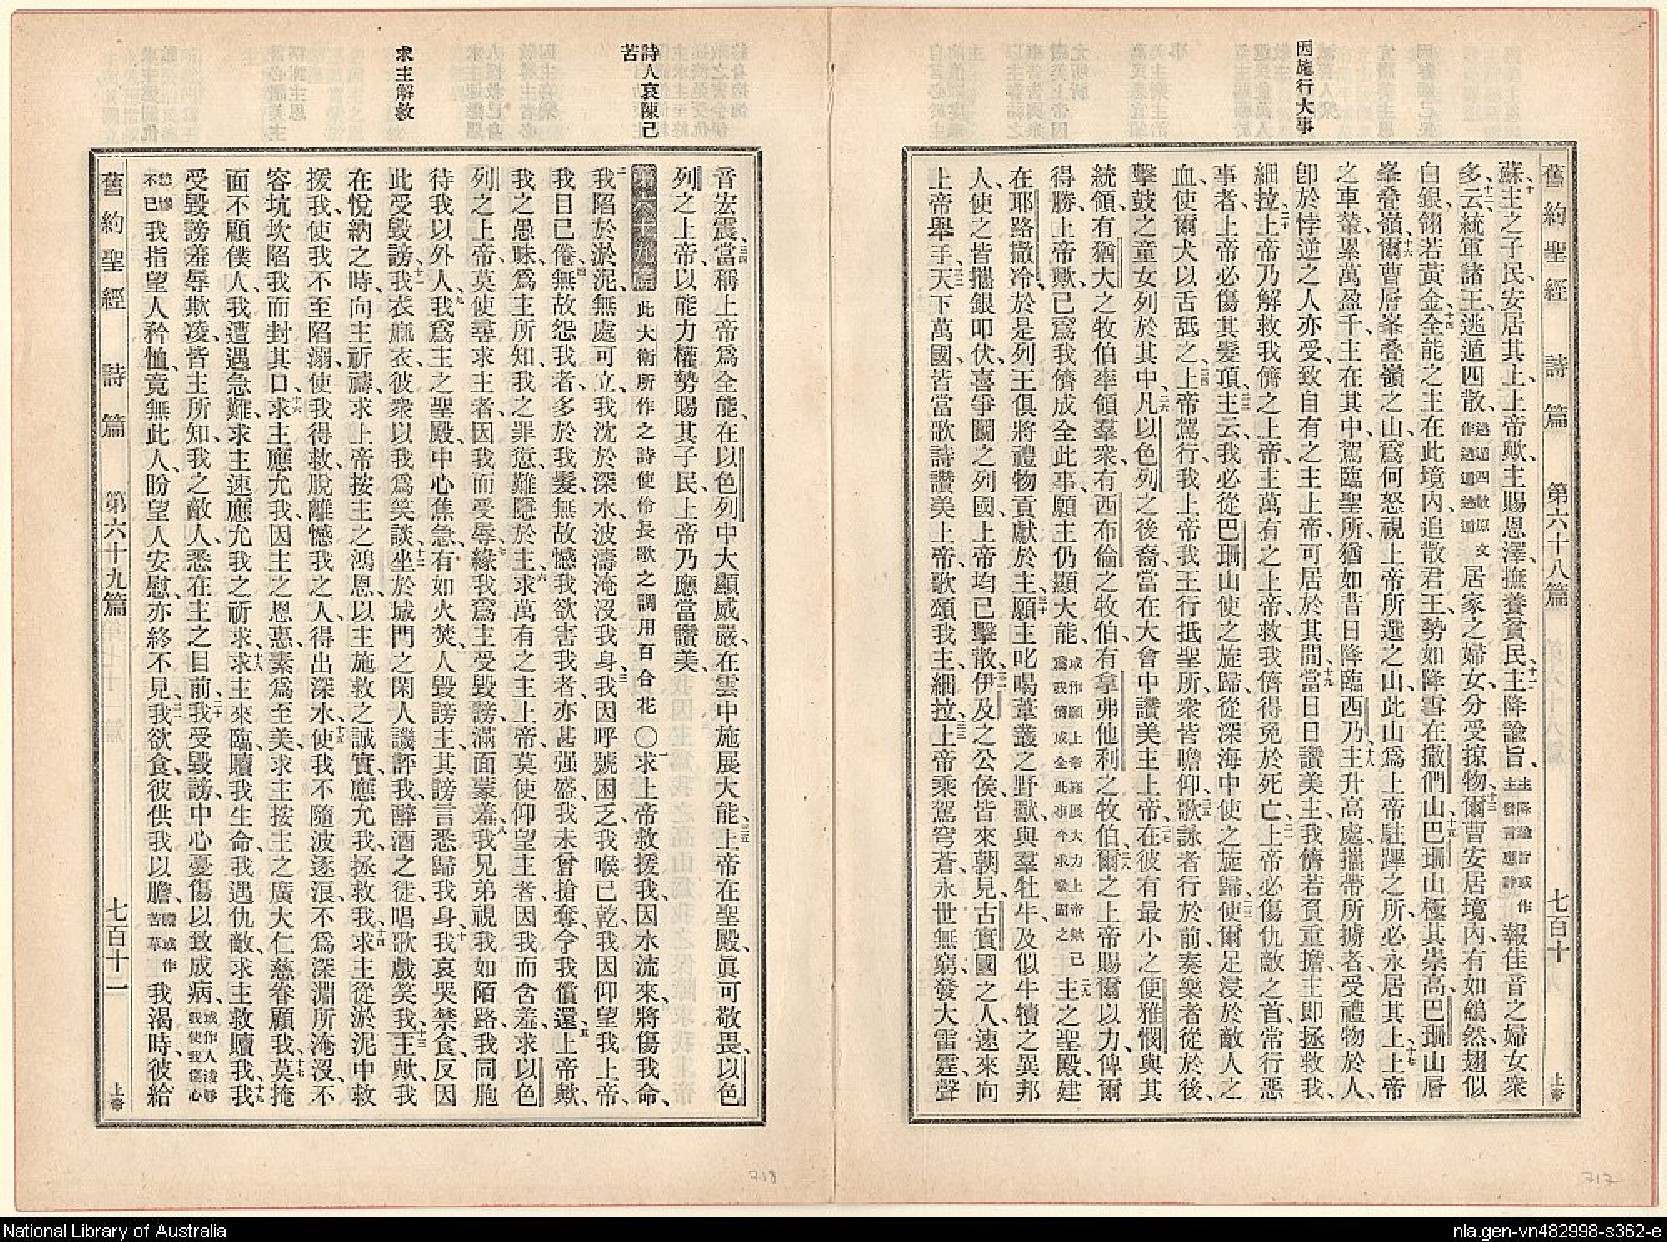 因施行大事
舊約聖經 詩篇 第六十八篇 七百十 上帝
蘇、主之子民、安居其上、上帝歟、主賜恩澤、撫養貧民、主降諭旨、主降諭旨或作主發言應許報佳音之婦女衆
多、云、統軍諸王、逃遁四散、逃遁四散原文作逃遁逃遁居家之婦女、分受掠物、爾曹安居境內、有如鴿然、翅似
白銀、翎若黃金、全能之主在此境內、追散君王、勢如降雪在撒們山、巴珊山極其崇高、巴珊山層
峯叠嶺、爾曹層峯叠嶺之山、爲何怒視上帝所選之山、此山爲上帝駐蹕之所、必永居其上、上帝
之車輦、累萬盈千、主在其中、駕臨聖所、猶如昔日降臨西乃、主升高處、攜帶所擄者、受禮物於人、
卽於悖逆之人亦受、致自有之主上帝、可居於其間、當日日讚美主、我儕若負重擔、主卽拯救我、
細拉、上帝乃解救我儕之上帝、主萬有之上帝、救我儕得免於死亡、上帝必傷仇敵之首、常行惡
事者、上帝必傷其髮頂、主云、我必從巴珊山使之旋歸、從深海中使之旋歸、使爾足浸於敵人之
血、使爾犬以舌舐之、上帝駕行、我上帝我王行抵聖所、衆皆瞻仰、歌詠者行於前、奏樂者從於後、
擊鼓之童女、列於其中、凡以色列之後裔、當在大會中讚美主上帝、在彼有最小之便雅憫、與其
統領、有猶大之牧伯、率領羣衆、有西布倫之牧伯、有拿弗他利之牧伯、爾之上帝賜爾以力、俾爾
得勝、上帝歟、已爲我儕成全此事、願主仍顯大能、或作願上帝顯展大力上帝歟已爲我儕成全此事今求堅固之主之聖殿、建
在耶路撒冷、於是列王俱將禮物貢獻於主、願主叱喝葦叢之野獸、與羣牡牛、及似牛犢之異邦
人、使之皆攜銀叩伏、喜爭鬭之列國、上帝均已擊散、伊及之公侯、皆來朝見、古實國之人、速來向
上帝舉手、天下萬國、皆當歌詩讚美上帝、歌頌我主、細拉、上帝乘駕穹蒼、永世無窮、發大雷霆、聲
詩人哀陳己苦
求主解救
音宏震、當稱上帝爲全能、在以色列中大顯威嚴、在雲中施展大能、上帝在聖殿、眞可敬畏、以色
列之上帝、以能力權勢賜其子民、上帝乃應當讚美、
此大衛所作之詩使伶長歌之調用百合花〇求上帝救援我、因水流來、將傷我命、
我陷於淤泥、無處可立、我沈於深水、波濤淹沒我身、我因呼號困乏、我喉已乾、我因仰望我上帝、
我目已倦、無故怨我者、多於我髮、無故憾我、欲害我者、亦甚强盛、我未曾搶奪、今我償還、上帝歟、
我之愚昧、爲主所知、我之罪愆、難隱於主、求萬有之主上帝、莫使仰望主者、因我而含羞、求以色
列之上帝、莫使尋求主者、因我而受辱、緣我爲主受毀謗、滿面蒙羞、我兄弟視我如陌路、我同胞
待我以外人、我爲主之聖殿、中心焦急、有如火焚、人毀謗主、其謗言悉歸我身、我哀哭禁食、反因
此受毀謗、我衣麻衣、彼衆以我爲笑談、坐於城門之閑人譏評我、醉酒之徒、唱歌戲笑我、主歟、我
在悅納之時、向主祈禱、求上帝按主之鴻恩、以主施救之誠實、應允我、拯救我、求主從淤泥中救
援我、使我不至陷溺、使我得救、脫離憾我之人、得出深水、使我不隨波逐浪、不爲深淵所淹沒、不
容坑坎陷我而封其口、求主應允我、因主之恩惠、素爲至美、求主按主之廣大仁慈、眷顧我、莫掩
面不顧僕人、我遭遇急難、求主速應允我之祈求、求主來臨、贖我生命、我遇仇敵、求主救贖我、我
受毀謗、羞辱、欺凌、皆主所知、我之敵人、悉在主之目前、我受毀謗、中心憂傷、以致成病、或作人凌辱我使我傷心
不已我指望人矜恤、竟無此人、盼望人安慰、亦終不見、我欲食、彼供我以膽、膽或作苦草我渴時、彼給
舊約聖經 詩篇 第六十九篇 七百十一 上帝
718
717
National Library of Australia
nla.gen-vn482998-s362-e